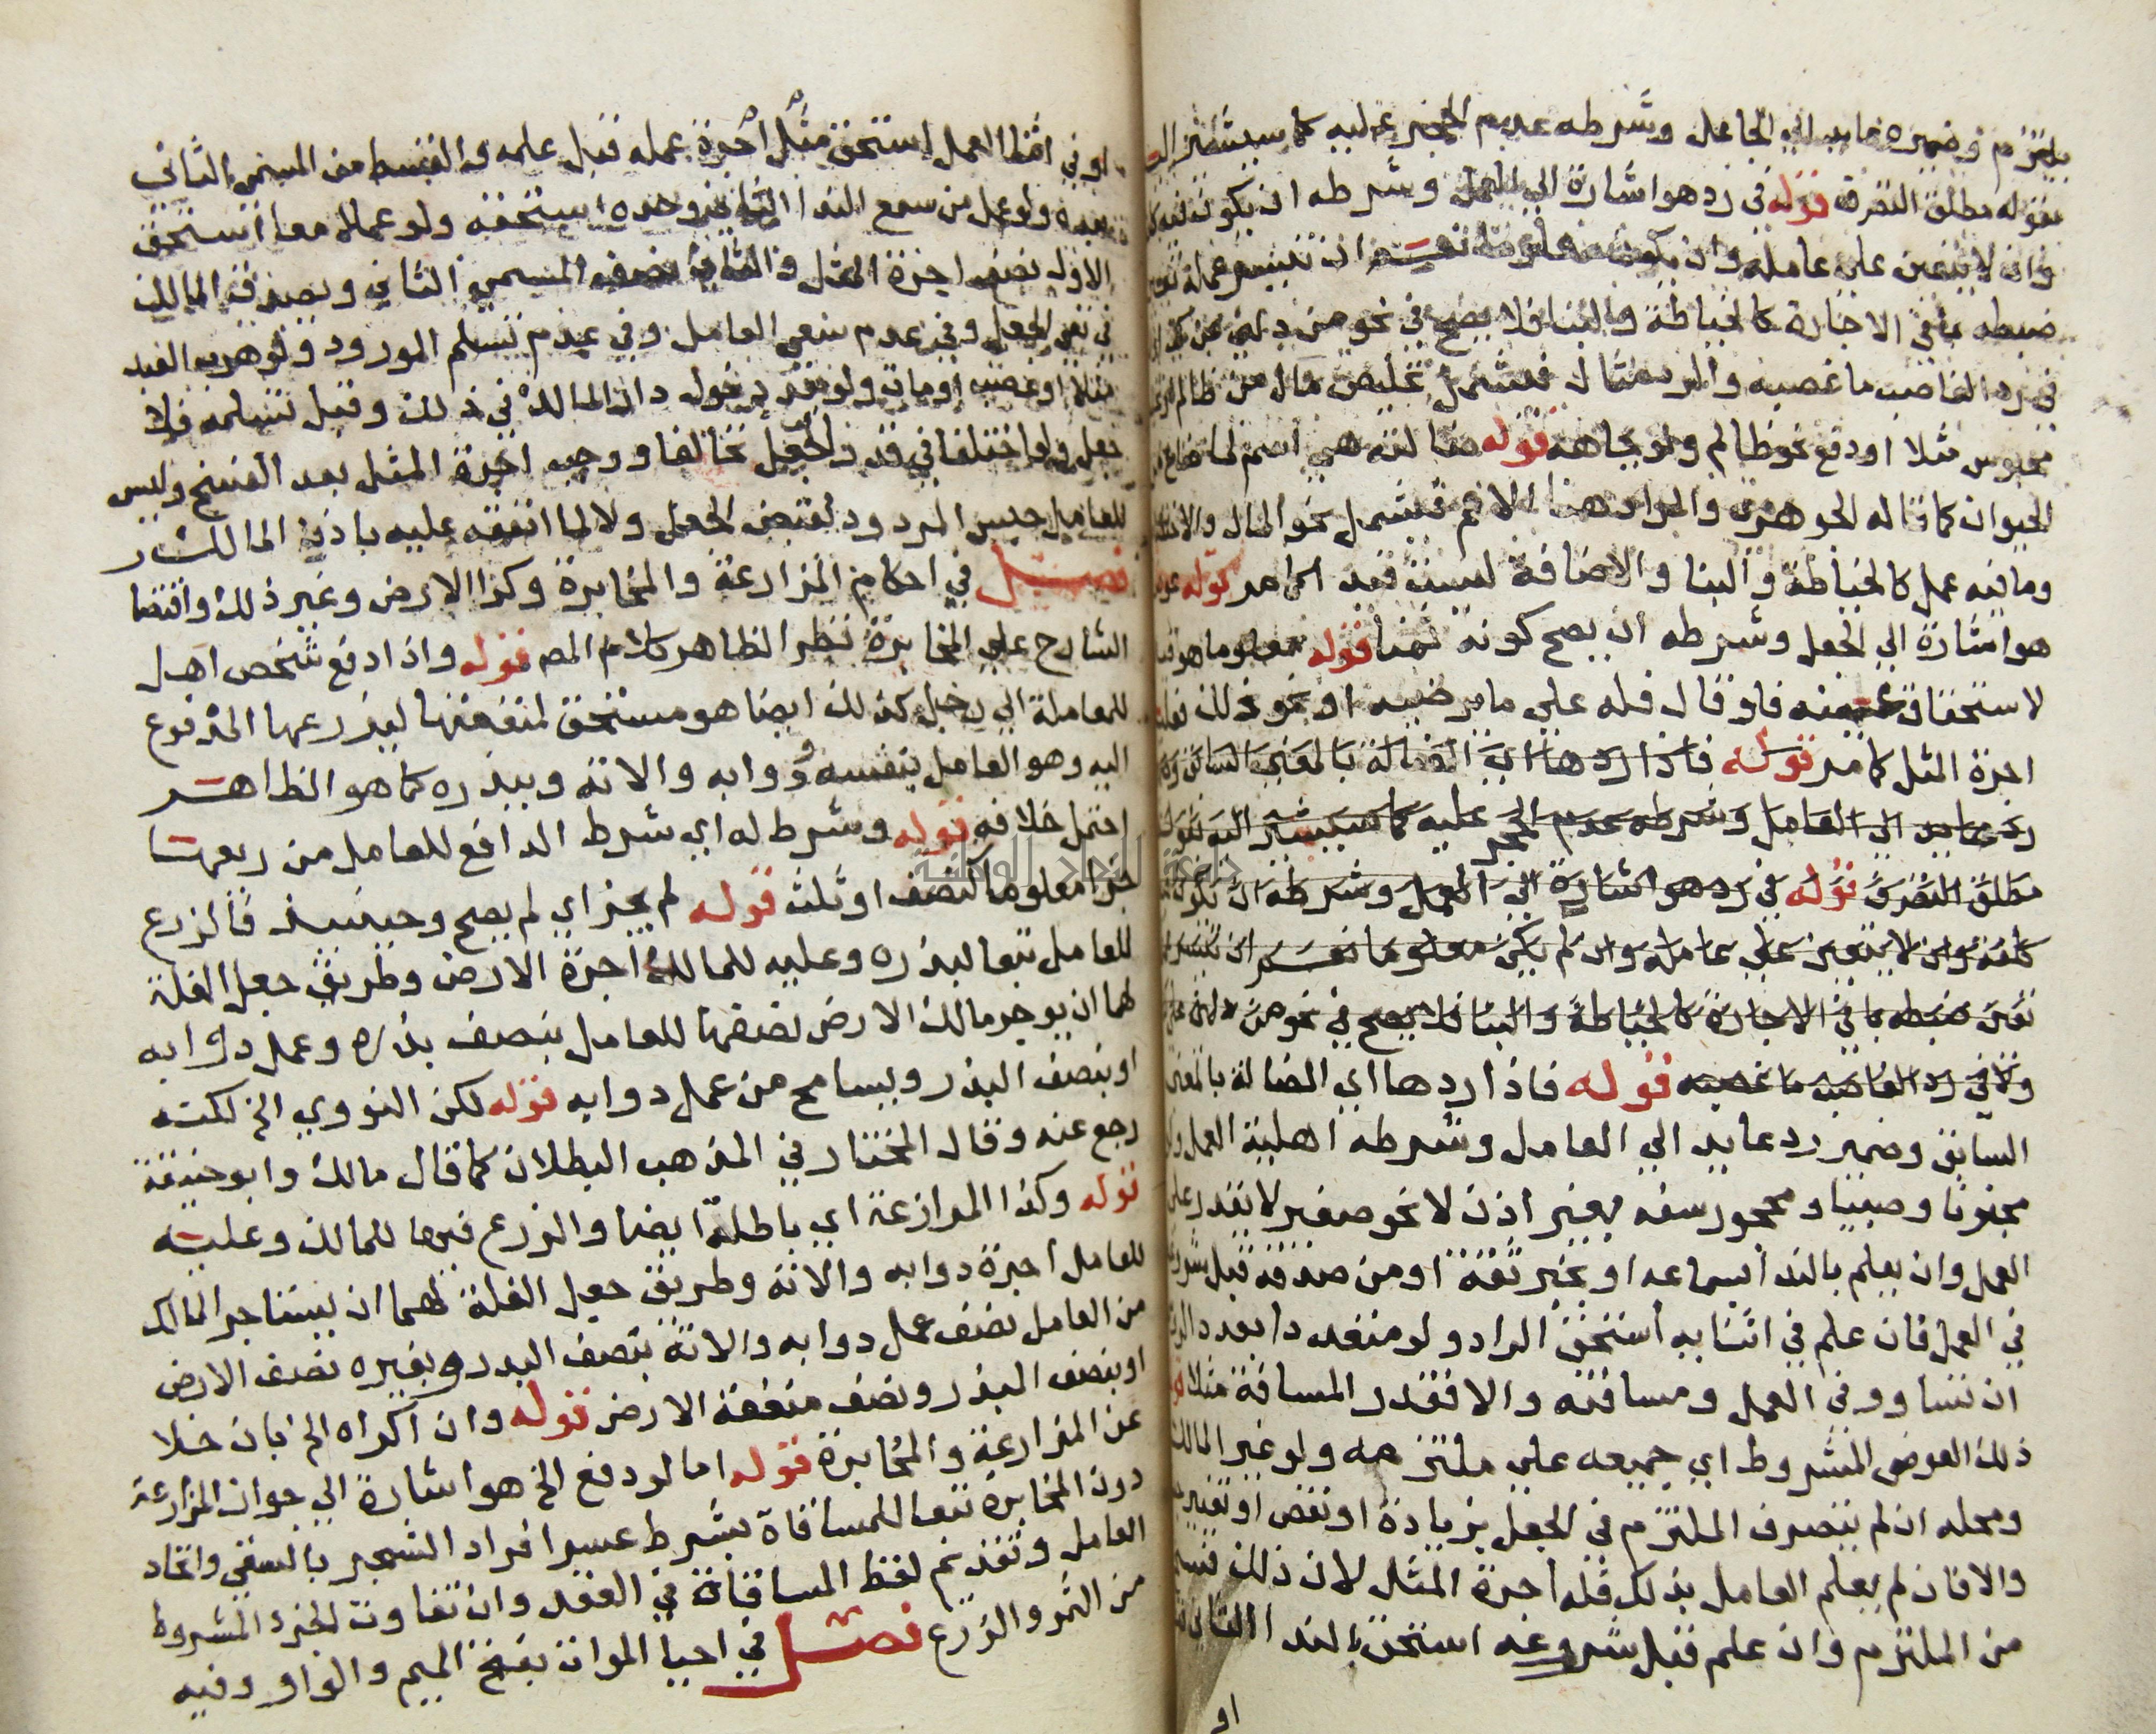 يلتزم وضميره عايد الي الجاعل وشرطه عدم الحجر عليه كما سيشير اليه
بقوله مطلق التصرف قوله في رد هو اشارة الي العمل وشرطه ان يكون فيه
وان لا يتعين علي عامله وان يكون معلوما نعم ان تيسر
ضبطه كما في الاجارة كالخياطة والبنا فلا يصح في نحو من
في رد الغاصب ما غصبه والرد مثال فيشمل تخليص مال من ظالم
محبوس مثلا او دفع نحو ظالم ولو بجاهه قوله ضالته هي اسم لما ضاع
الحيوان كما قاله الجوهري والمراد هنا الاعم فيشمل نحو المال
وما فيه عمل كالخياطة والبنا والاضافة ليست قوله
هو اشارة الي الجعل وشرطه ان يصح كونه ثمنا قوله معلوما هو
لاستحقاق فلو قال فله علي ما يرضيه او نحو ذلك فله
اجرة المثل كما مر قوله فاذا ردها اي الضالة بالمعني السابق
رد عايد الي العامل وشرطه عدم الحجر عليه كما سيشير اليه بقوله
مطلق التصرف قوله في رد هو اشارة الي العمل وشرطه ان يكون
كلفة وان لا يتعين علي عامله وان لم يكن معلوما نعم ان تيسر
ضبطه كما في الاجارة كالخياطة والبنا فلا يصح في نحو
ولا في رد الغاصب ما غصبه قوله فاذا ردها اي الضالة بالمعني
السابق وضمير رد عايد الي العامل وشرطه اهلية العمل
مجنونا وصبيا ومحجور سفه بغير اذن لا نحو صغير لا يقدر علي
العمل وان يعلم بالندا بسماعه او بخبر ثقة او من صدقه قبل شروعه
في العمل فان علم في اثنايه استحق الراد ولو
ان تساووا في العمل ومسافته والا فقدر المسافة مثلا
ذلك العوض المشروط اي جميعه علي ملتزمه ولو غير المالك
ومحله ان لم يتصرف الملتزم في الجعل بزيادة او نقص او تغيير
والا فان لم يعلم العامل بذلك فله اجرة المثل لان ذلك فسخ
من الملتزم وان علم قبل شروعه استحق بالندا الثاني
او
او في اثنا العمل استحق مثل اجرة عمله قبل علمه والقسط من المسمي الثاني
بعده ولو عمل من سمع الندا الثاني وحده استحقه ولو عملا معا استحق
الاول نصف اجرة المثل والثاني نصف المسمي الثاني ويصدق المالك
في نفي الجعل وفي عدم سعي العامل وفي عدم تسلم المردود ولو هرب العبد
مثلا او غصب او مات ولو بعد دخول دار المالك في ذلك وقبل تسلمه فلا
جعل ولو اختلفا في قدر الجعل تحالفا ووجب اجرة المثل بعد الفسخ وليس
للعامل حبس المردود لقبض الجعل ولا لما انفقه عليه باذن المالك
فصل في احكام المزارعة والمخابرة وكرا الارض وغير ذلك واقتصار
الشارح علي المخابرة نظر الظاهر كلام المص قوله واذا دفع شخص اهل
للمعاملة الي رجل كذلك ارضا هو مستحق لمنفعتها ليزرعها المدفوع
اليه وهو العامل بنفسه ودوابه والاته وببذره كما هو الظاهر
احتمل خلافه قوله وشرط له اي شرط الدافع للعامل من ريعها
جزا معلوما كنصف او ثلث قوله لم يجز اي لم يصح وحينيذ فالزرع
للعامل تبعا لبذره وعليه للمالك اجرة الارض وطريق جعل الغلة
لهما ان يوجر مالك الارض نصفها للعامل بنصف بذره وعمل دوابه
او بنصف البذر ويسامح من عمل دوابه قوله لكن النووي الخ لكنه
رجع عنه وقال المختار في المذهب البطلان كما قال مالك وابو حنيفة
قوله وكذا المزارعة اي باطلة ايضا والزرع فيها للمالك وعليه
للعامل اجرة دوابه والاته وطريق جعل الغلة لهما ان يستاجر المالك
من العامل نصف عمل دوابه والاته بنصف البذر وبغيره نصف الارض
او بنصف البذر ونصف منفعة الارض قوله وان اكراه الخ بان خلا
عن المزارعة والمخابرة قوله اما لو دفع الخ هو اشارة الي جواز المزارعة
دون المخابرة تبعا للمساقاة بشرط عسر افراد الشجر بالسقي واتحاد
العامل وتقديم لفظ المساقاة في العقد وان تفاوت الجزء المشروط
من الثمر والزرع فصل في احيا الموات بفتح الميم والواو وفيه